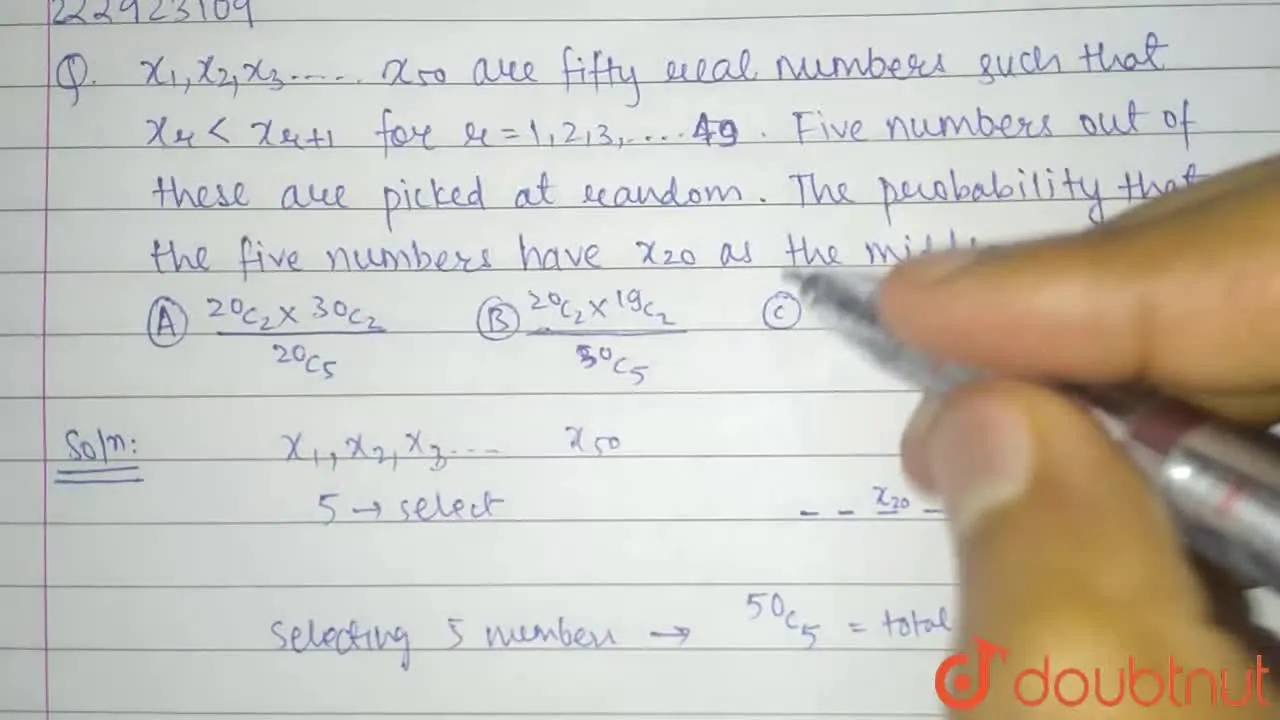 222923109
Q. x₁, x₂, x₃ ..... x₅₀ are fifty real numbers such that
xᵣ < xᵣ₊₁ for r = 1, 2, 3, ... 49. Five numbers out of
these are picked at random. The probability that
the five numbers have x₂₀ as the
(A) ²⁰C₂ × ³⁰C₂ / ²⁰C₅ (B) ²⁰C₂ × ¹⁹C₂ / ⁵⁰C₅ (C)
Soln: x₁, x₂, x₃ ... x₅₀
5 → select _ _ x₂₀ _
selecting 5 number → ⁵⁰C₅ = total
doubtnut